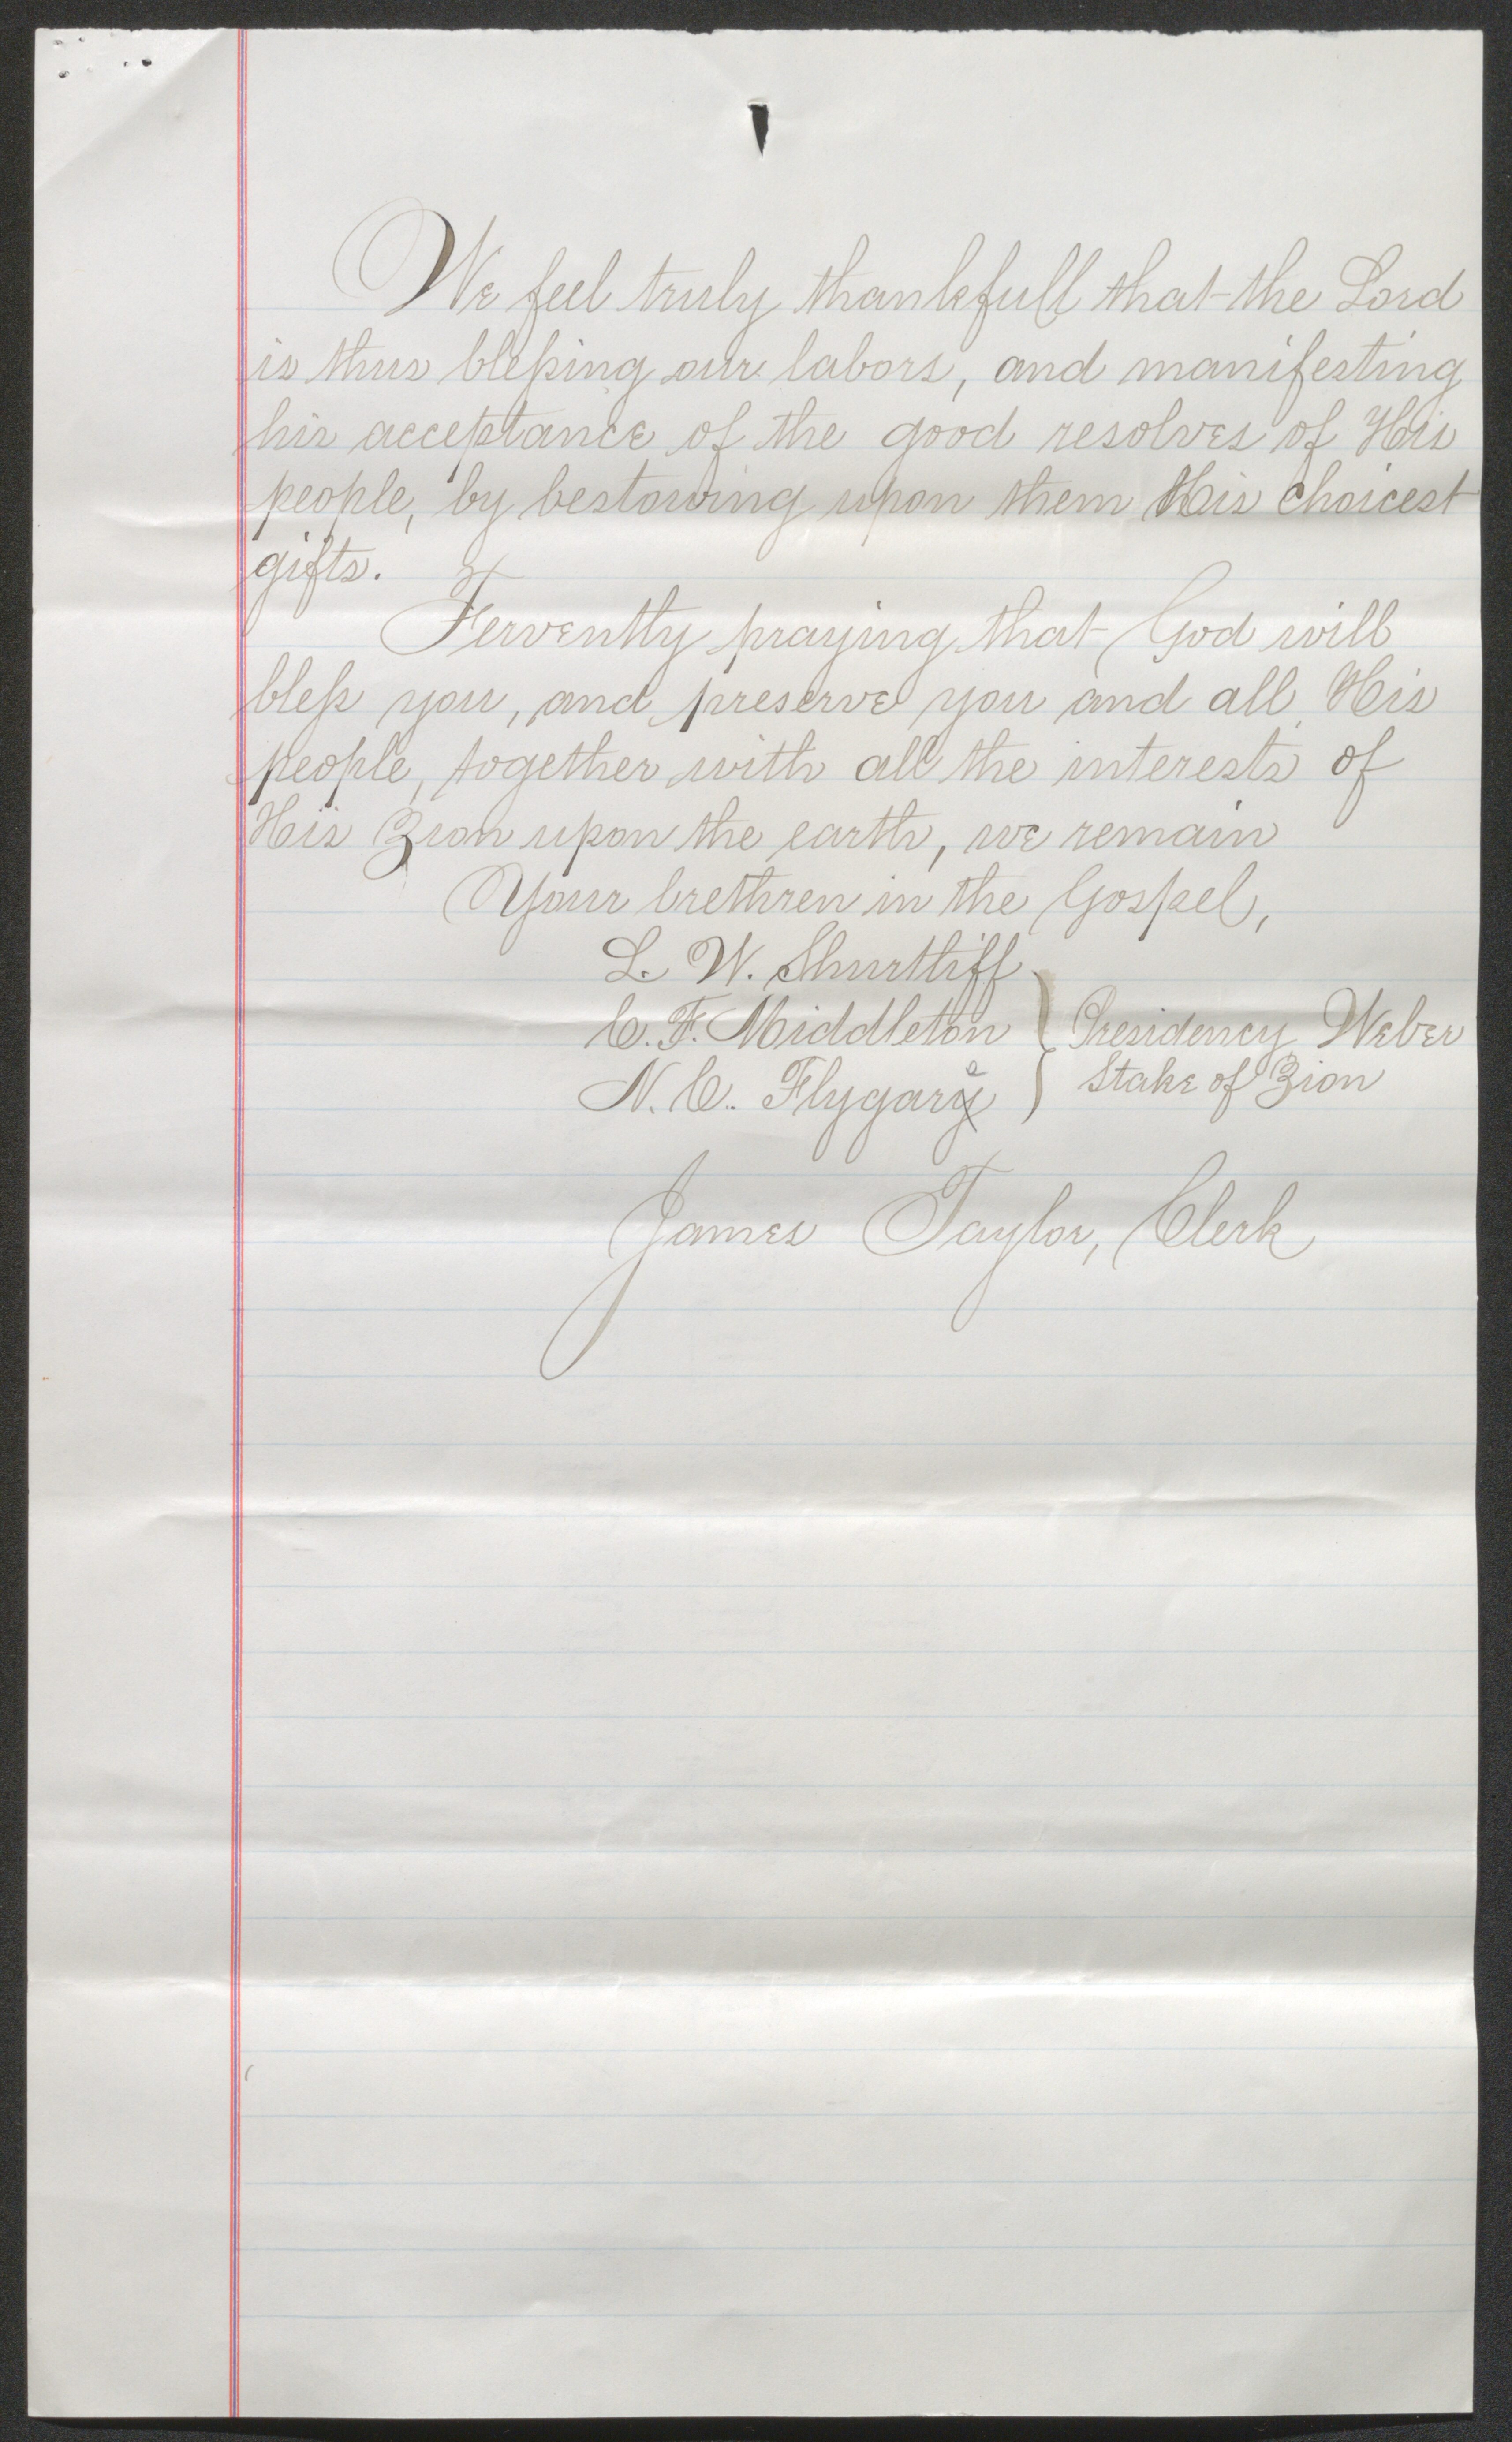 We feel truly thankfull that the Lord
is thus blessing our labors, and manifesting
his acceptance of the good resolves of His
people, by bestowing upon them His choicest
gifts.
Fervently praying that God will
bless you, and preserve you and all His
people, together with all the interests of
His Zion upon the earth, we remain
Your brethren in the Gospel,
L. W. Shurtliff
C. F. Middleton } Presidency Weber
N. C. Flygare } Stake of Zion
James Taylor, Clerk